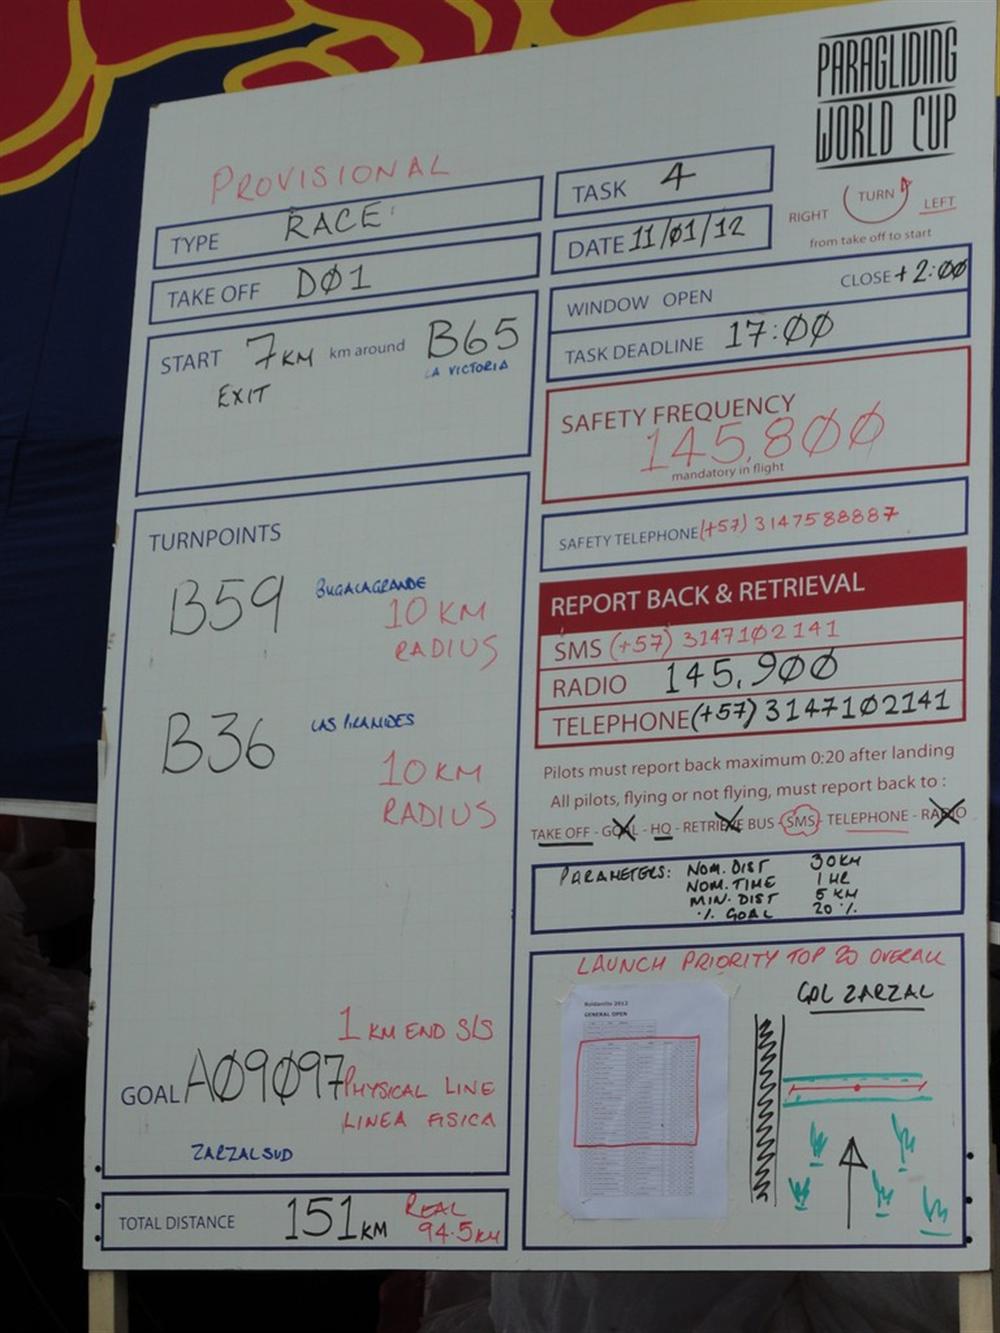 PARAGLIDING
WORLD CUP
PROVISIONAL
TYPE RACE
TAKE OFF DØ1
START 7KM km around B65
LA VICTORIA
EXIT
TASK 4
DATE 11/Ø1/12
RIGHT TURN LEFT
from take off to start
WINDOW OPEN CLOSE + 2:ØØ
TASK DEADLINE 17:ØØ
SAFETY FREQUENCY
145,8ØØ
mandatory in flight
SAFETY TELEPHONE (+57) 3147588887
REPORT BACK & RETRIEVAL
SMS (+57) 31471Ø2141
RADIO 145,9ØØ
TELEPHONE (+57) 31471Ø2141
Pilots must report back maximum 0:20 after landing
All pilots, flying or not flying, must report back to :
TAKE OFF - GOAL - HQ - RETRIEVE BUS - SMS - TELEPHONE - RADIO
PARAMETERS: NOM. DIST 30KM
NOM. TIME 1 HR
MIN. DIST 5 KM
% GOAL 20 %
TURNPOINTS
B59 BUGALAGRANDE
10 KM
RADIUS
B36 LAS PIRAMIDES
10 KM
RADIUS
1 KM END S/S
GOAL AØ9Ø97 PHYSICAL LINE
LINEA FISICA
ZARZAL SUD
TOTAL DISTANCE 151KM REAL
94.5KM
LAUNCH PRIORITY TOP 20 OVERALL
GOL ZARZAL
Roldanillo 2012
GENERAL OPEN